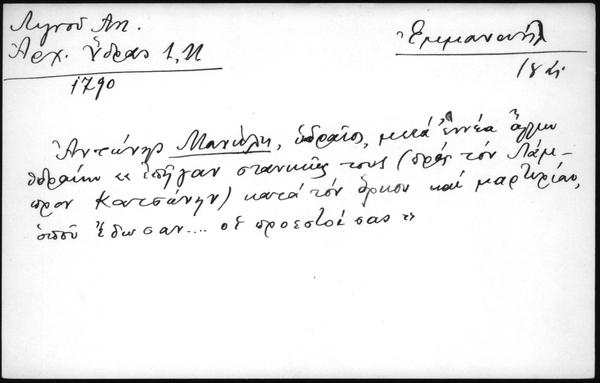 Λιγνοῦ Αντ.
Ἀρχ. Ὕδρας 1, 11
1790
Ἐμμανουήλ
Ἀντώνης Μανώλη, ὑδραῖος, μετά ἐννέα ἄλλων
ὑδραίων « ἐπῆγαν στανικῶς τους (πρός τόν Λάμ-
προν Κατσώνην) κατά τόν ὅρκον καί μαρτυρίαν,
ὁποῦ ἔδωσαν.... οἱ προεστοί σας »